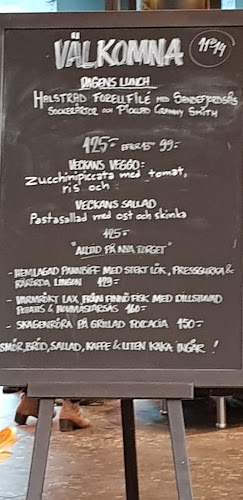 VÄLKOMNA 11³⁰-14
DAGENS LUNCH
HALSTRAD FORELLFILÉ MED SANDEFJORDSÅS
SOCKERÄRTOR OCH PICKLAD GRANNY SMITH
125:- EFTER 13⁰⁰ 99:-
VECKANS VEGGO:
Zucchinipiccata med tomat,
ris och
VECKANS SALLAD
Pastasallad med ost och skinka
125:-
"ALLTID PÅ NYA TORGET"
- HEMLAGAD PANNBIFF MED STEKT LÖK, PRESSGURKA &
RÅRÖRDA LINGON 129:-
- VARMRÖKT LAX FRÅN FINNÖ FISK MED DILLSTUVAD
POTATIS & HOVMÄSTARSÅS 160:-
- SKAGENRÖRA PÅ GRILLAD FOCACIA 150:-
SMÖR, BRÖD, SALLAD, KAFFE & LITEN KAKA INGÅR!